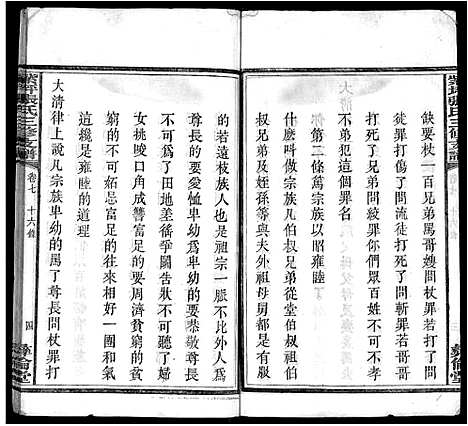 紫坪張氏三修支譜
缺要杖一百兄弟罵哥嫂問杖罪若打了哥嫂問
徒罪打傷了問流罪打死了問斬罪若哥哥
打死了兄弟問絞罪你們眾百姓不可不
這个罪名
第二條篤宗族以昭雍睦
什麼叫做宗族凡伯叔從堂伯叔
伯叔兄弟姪孫等與夫外
的若遠枝族人也是祖宗一脈不比外人爲
尊長的要愛恤卑幼爲卑幼的要恭敬尊長
不可爲了田地差徭爭鬬告狀不可聽了婦
女挑唆口角成讐富足的要周濟貧窮的貧
窮的不妬忌富足的往來相好一團和氣
這纔是雍睦的道理
大清律上說凡宗族卑幼的罵了尊長問杖罪打
紫坪張氏三修支譜
卷七
十六條
四
彝倫堂